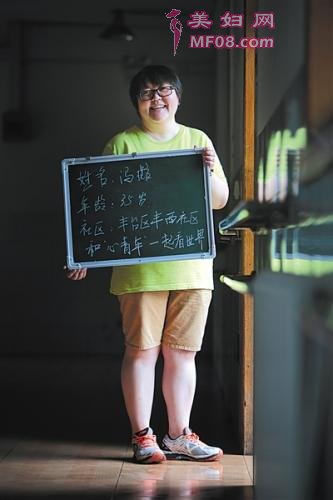 美妇网
MF08.com
姓名：冯璇
年龄：35岁
社区：丰台区丰西社区
和“心青年”一起看世界